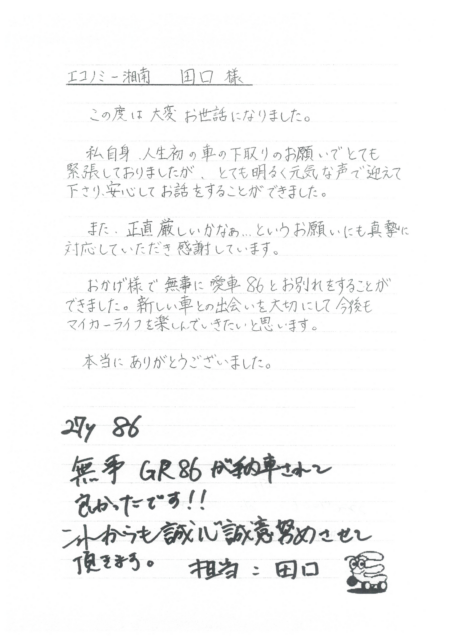 エコノミー湘南 田口 様
この度は 大変 お世話になりました。
私自身、人生初の車の下取りのお願いでとても
緊張しておりましたが、とても明るく元気な声で迎えて
下さり、安心してお話をすることができました。
また、正直厳しいかなぁ…というお願いにも真摯に
対応していただき感謝しています。
おかげ様で無事に愛車86とお別れをすることが
できました。新しい車との出会いを大切にして今後も
マイカーライフを楽しんでいきたいと思います。
本当にありがとうございました。
27y 86
無事 GR86が納車されて
良かったです!!
これからも誠心誠意努めさせて
頂きます。 担当:田口